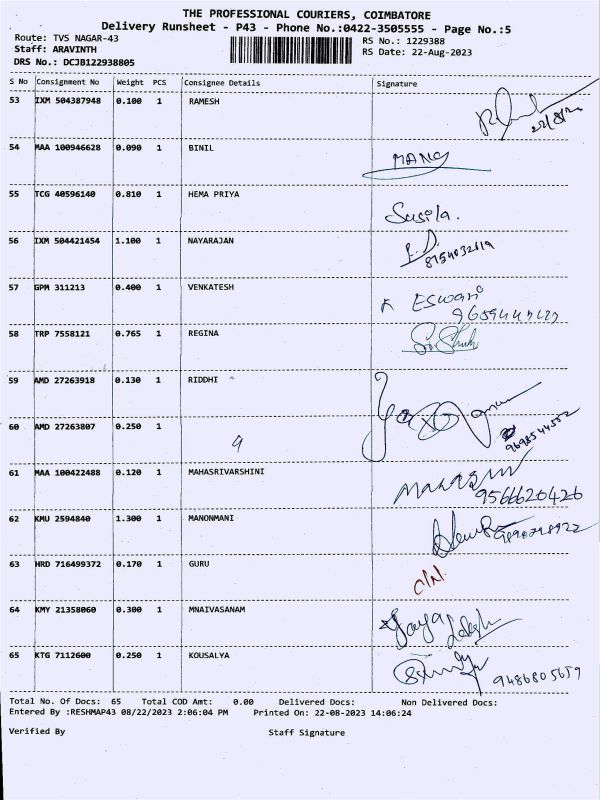 THE PROFESSIONAL COURIERS, COIMBATORE
Delivery Runsheet - P43 - Phone No.:0422-3505555 - Page No.:5
Route: TVS NAGAR-43 RS No.: 1229388
Staff: ARAVINTH RS Date: 22-Aug-2023
DRS No.: DCJB122938805
S No Consignment No Weight PCS Consignee Details Signature
53 IXM 504387948 0.100 1 RAMESH
54 MAA 100946628 0.090 1 BINIL MANO
55 TCG 40596140 0.810 1 HEMA PRIYA Susila.
56 IXM 504421454 1.100 1 NAYARAJAN
57 GPM 311213 0.400 1 VENKATESH ESWARI
58 TRP 7558121 0.765 1 REGINA
59 AMD 27263918 0.130 1 RIDDHI
60 AMD 27263807 0.250 1 9
61 MAA 100422488 0.120 1 MAHASRIVARSHINI
9566620426
62 KMU 2594840 1.300 1 MANONMANI
63 HRD 716499372 0.170 1 GURU
64 KMY 21358060 0.300 1 MNAIVASANAM
65 KTG 7112600 0.250 1 KOUSALYA
9486805659
Total No. Of Docs: 65 Total COD Amt: 0.00 Delivered Docs: Non Delivered Docs:
Entered By :RESHMAP43 08/22/2023 2:06:04 PM Printed On: 22-08-2023 14:06:24
Verified By Staff Signature